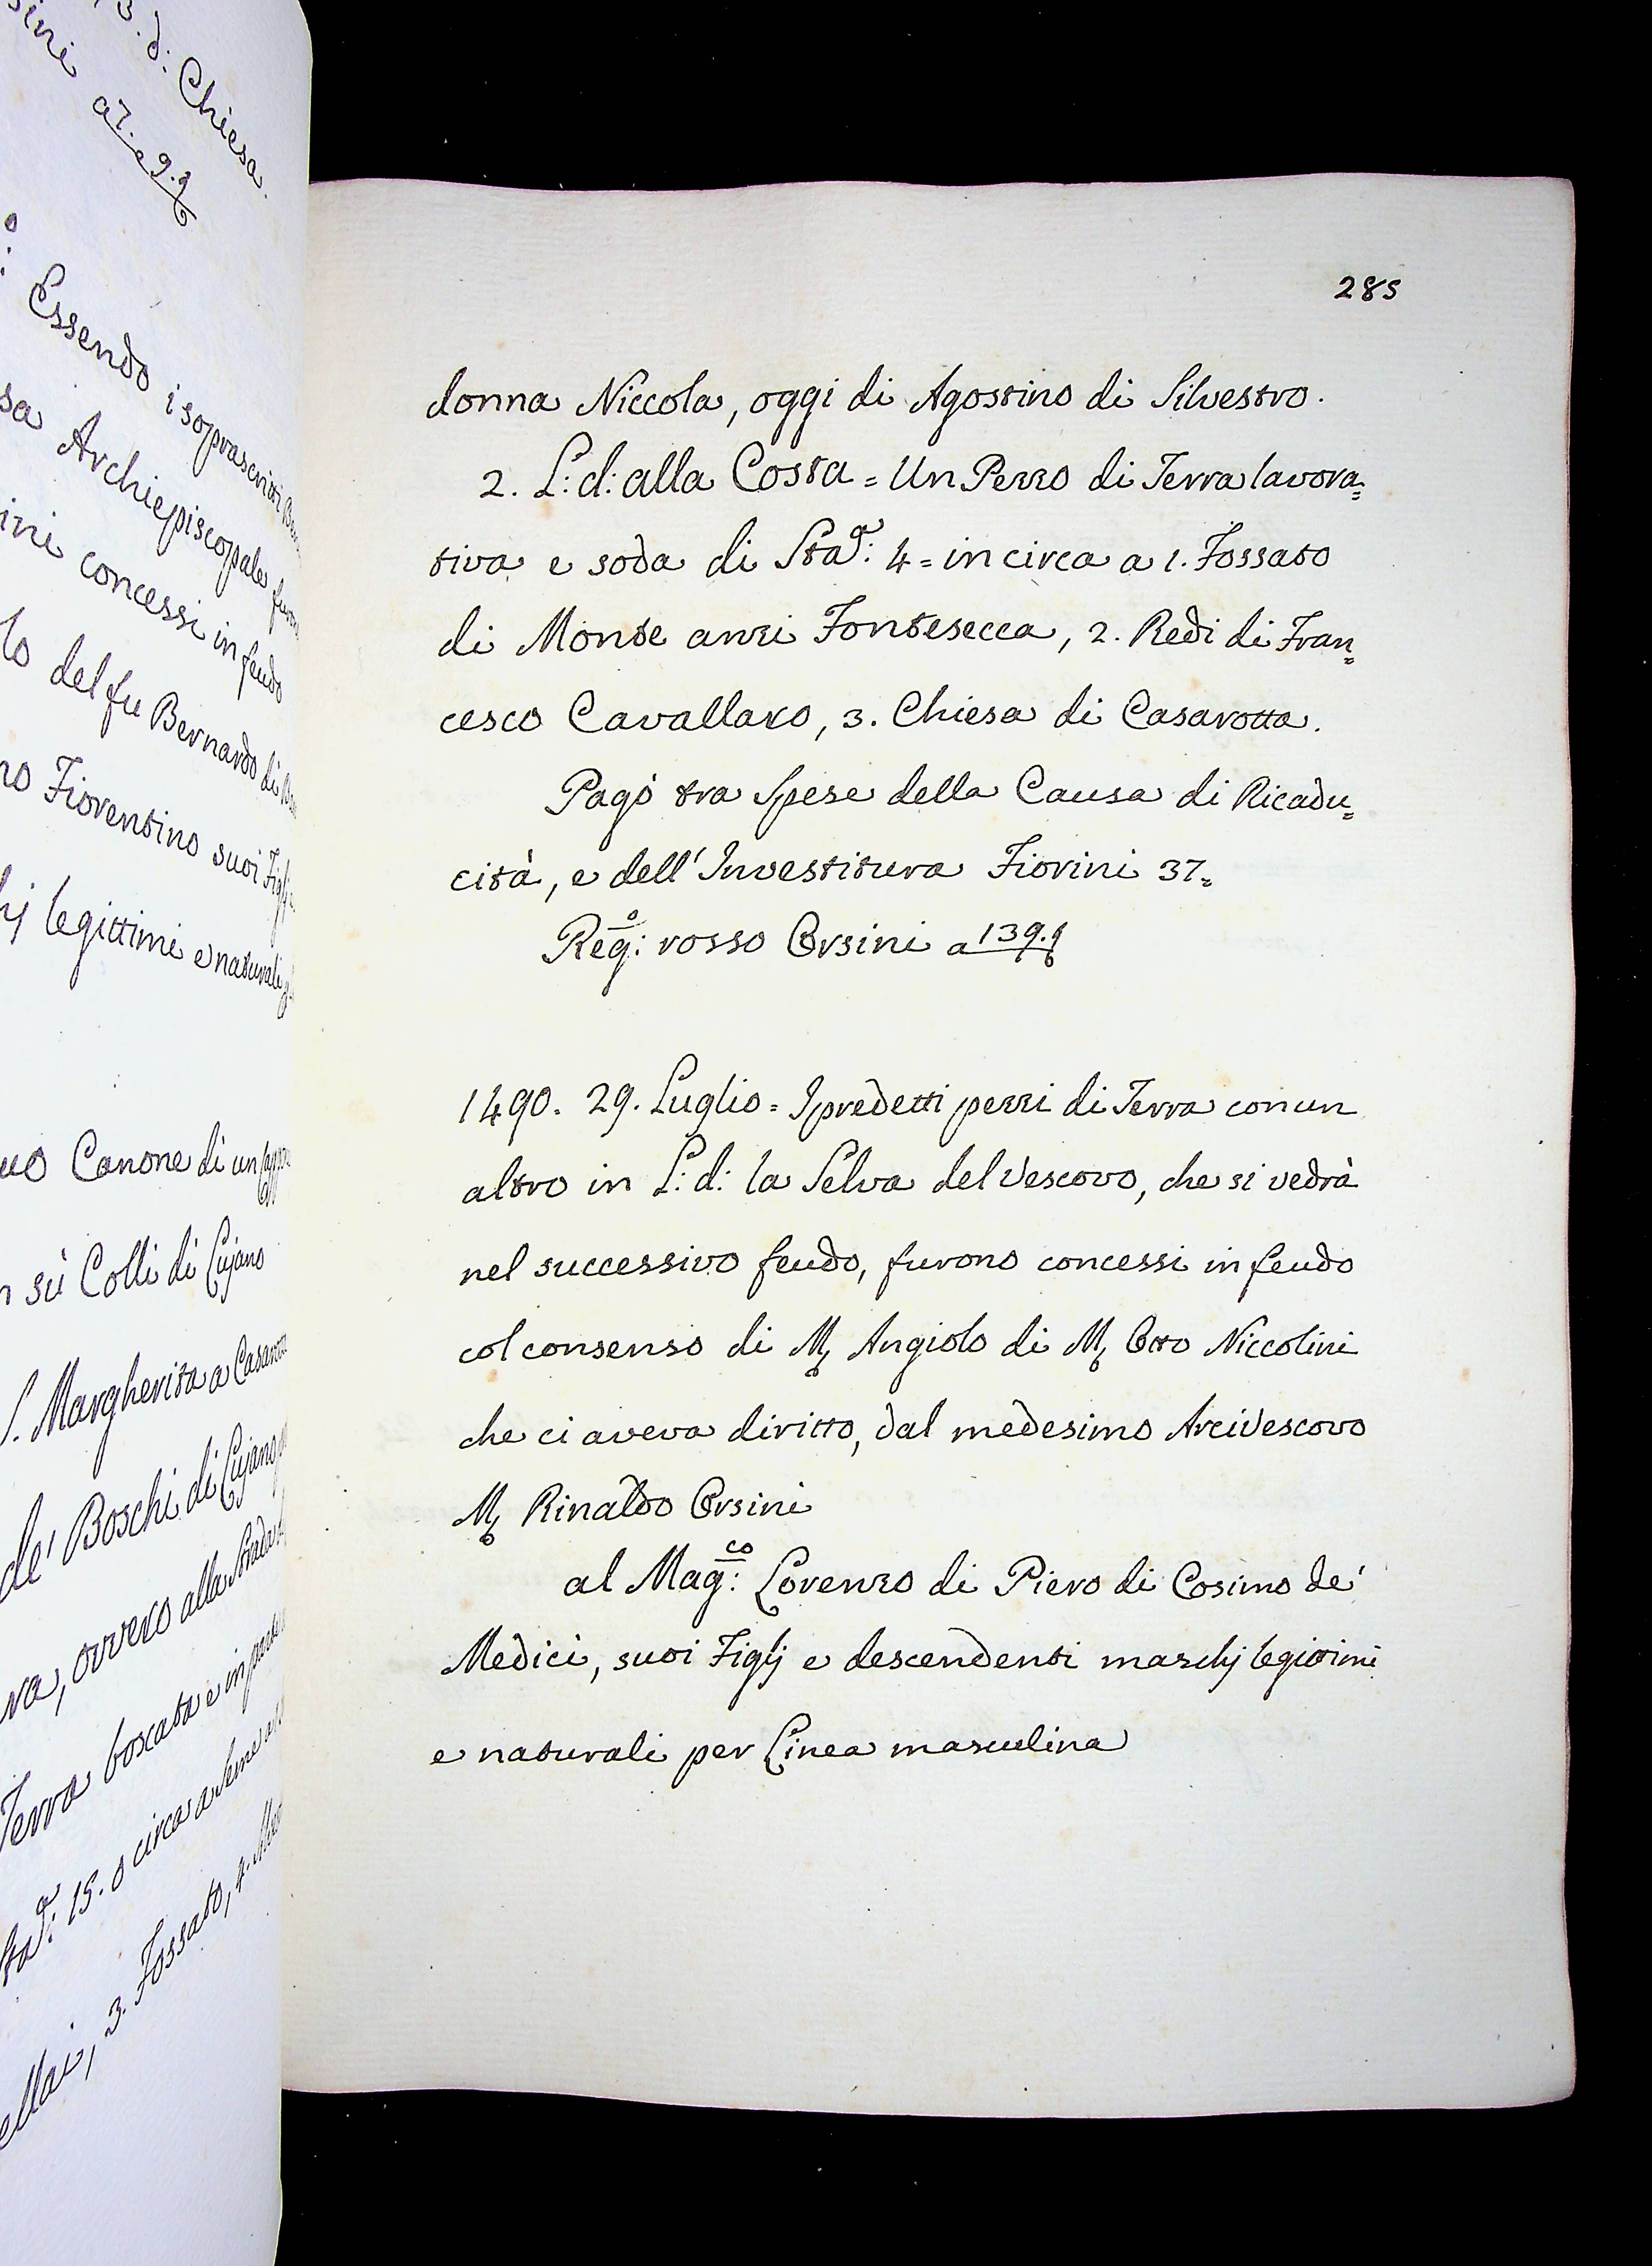 3. d: Chiesa.
a 7. e 9.
Essendo i soprascritti
Archiepiscopale
concessi in feudo
del fu Bernardo di
Fiorentino suoi Figlj
legittimi e naturali
Canone di un
sù Colli di Cujano
S. Margherita a
de' Boschi di Cujano
ovvero alla Strada
Terra boscata e in parte
Sta.ª: 15. o circa a
3. Fossato, 4.
285
donna Niccola, oggi di Agostino di Silvestro.
2. L: d: alla Costa = Un Pezzo di Terra lavora=
tiva e soda di Sta.ª: 4 = in circa a 1. Fossato
di Monte anzi Fontesecca, 2. Redi di Fran=
cesco Cavallaro, 3. Chiesa di Casarotta.
Pagò tra Spese della Causa di Ricadu=
cità, e dell' Investitura Fiorini 37=
Reg:º rosso Orsini a 139.
1490. 29. Luglio = I predetti pezzi di Terra con un
altro in L: d: la Selva del Vescovo, che si vedrà
nel successivo feudo, furono concessi in feudo
col consenso di M. Angiolo di M. Otto Niccolini
che ci aveva diritto, dal medesimo Arcivescovo
M. Rinaldo Orsini
al Mag:co Lorenzo di Piero di Cosimo de'
Medici, suoi Figlj e descendenti maschj legittimi
e naturali per Linea masculina